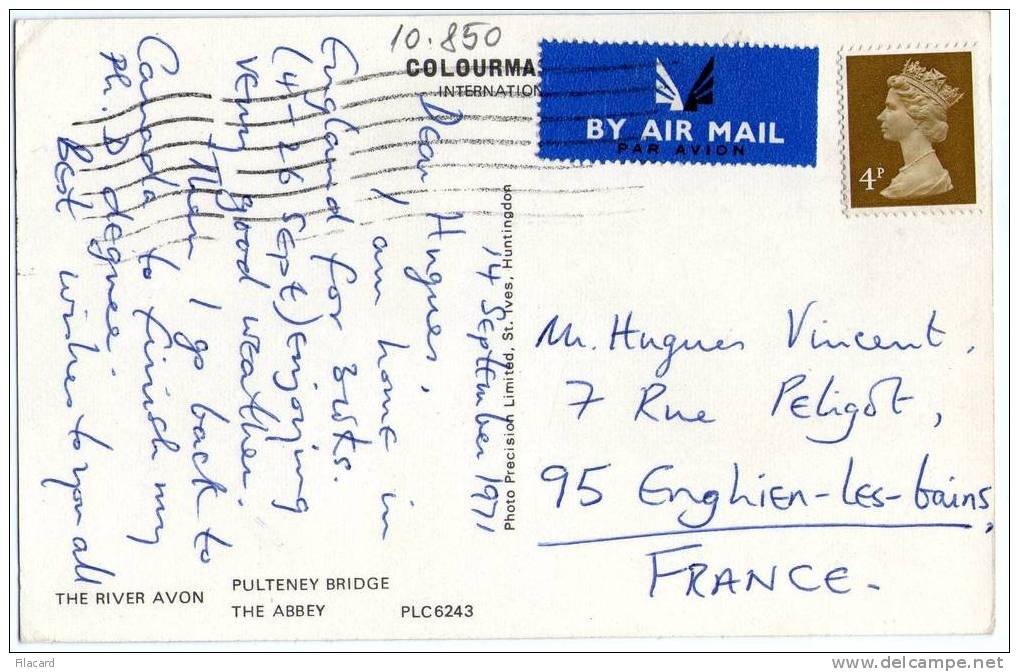 10.850
COLOURMA
INTERNATION
BY AIR MAIL
PAR AVION
4P
14 September 1971
Dear Hugues,
I am home in
England for 3 wks.
(4-26 Sept) Enjoying
very good weather.
Then I go back to
Canada to finish my
Ph.D degree.
Best wishes to you all
Photo Precision Limited, St. Ives, Huntingdon
Mr. Hugues Vincent,
7 Rue Peligot,
95 Enghien-les-bains,
FRANCE-
THE RIVER AVON
PULTENEY BRIDGE
THE ABBEY
PLC6243
Filacard
www.delcampe.net